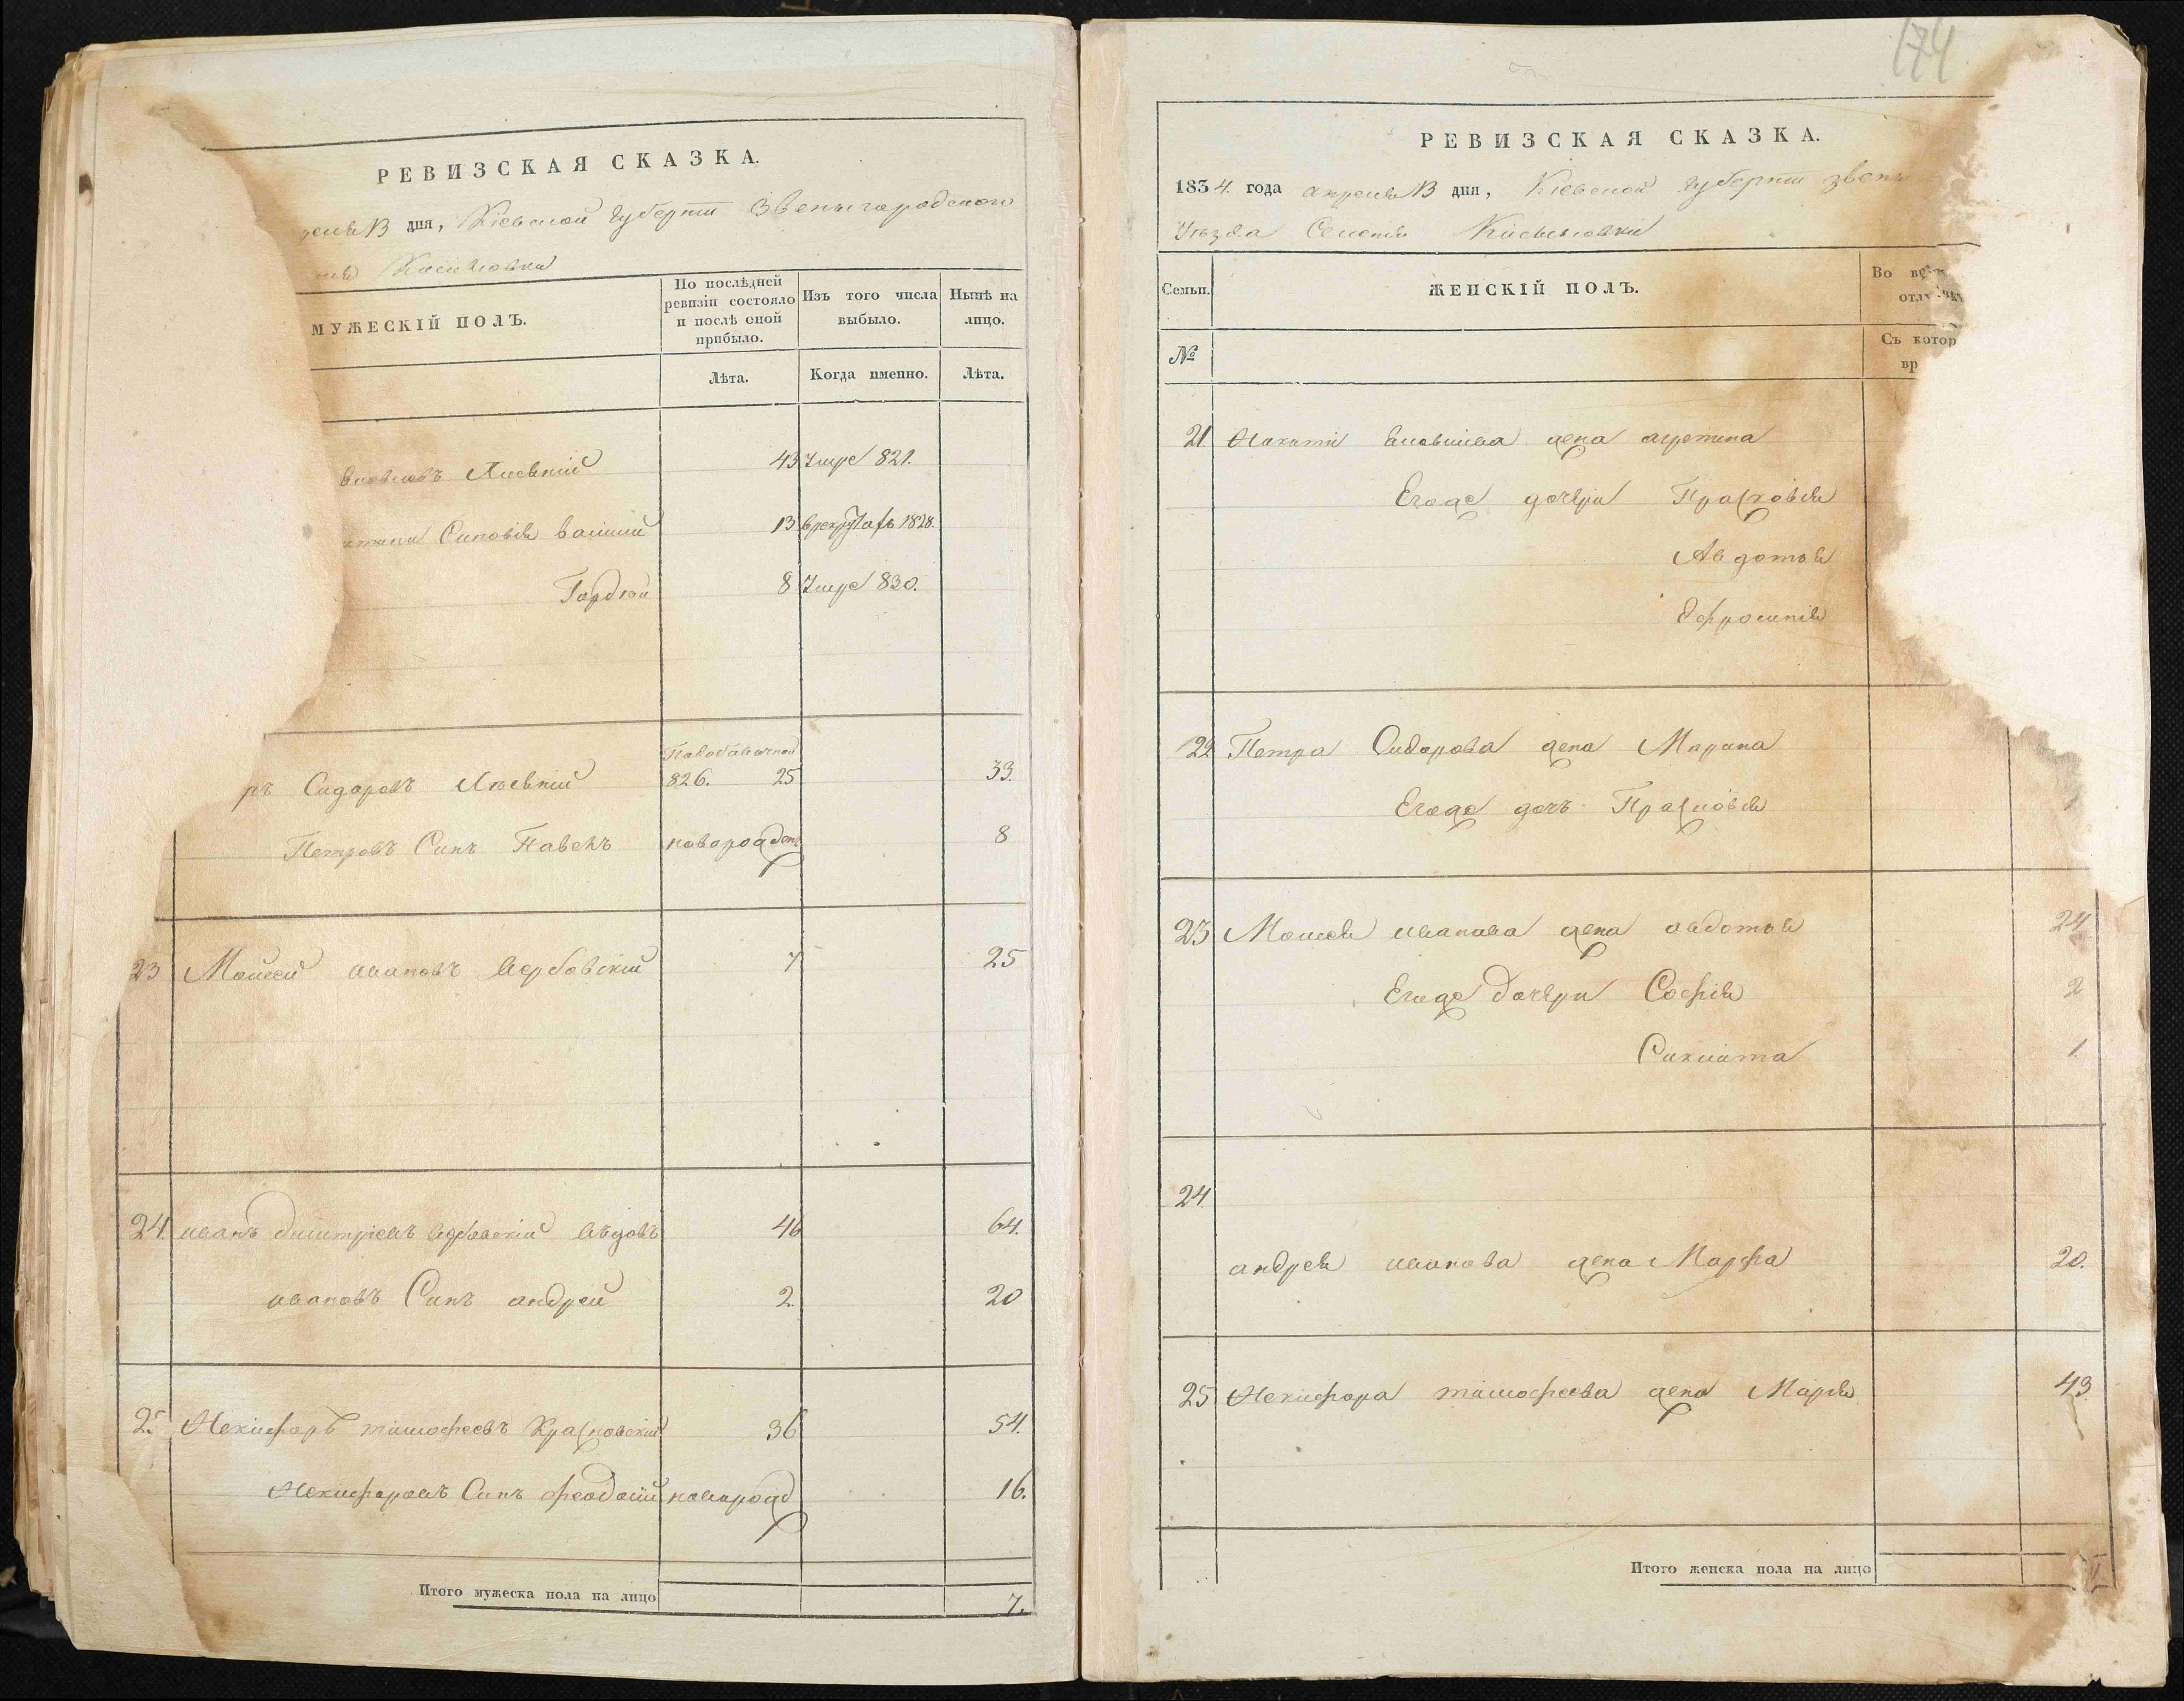 РЕВИЗСКАЯ СКАЗКА.
дня, Кіевской Губерніи Звенигородского
МУЖЕСКІЙ ПОЛЪ.
По послѣдней ревизіи состояло и послѣ оной прибыло.
Изъ того числа выбыло.
Нынѣ на лицо.
Лѣта.
Когда именно.
Лѣта.
43 Умре 821.
13 1828.
Гордѣй 8 Умре 830.
826. 25 33.
Сидоровъ
Петровъ Синъ Павелъ новорожден 8
23 Мойсей ивановъ Вербовскій 7 25
24. иванъ дмитріевъ вербовскій Вдовъ 46 64.
ивановъ Синъ андрей 2. 20
25 Некифоръ тимофеевъ Красновскій 36 54.
Некифоровъ Синъ феодосій новорожд 16.
Итого мужеска пола на лицо 7.
174
РЕВИЗСКАЯ СКАЗКА.
1834. года апреля 13 дня, Кіевской Губерніи Звени
Уѣзда Селенія
Семьи.
ЖЕНСКІЙ ПОЛЪ.
Во вр
отлу
№
Съ котор
вр
21. жена
Егоже дочери Прасковія
Авдотья
Ефросинія
22 Петра Сидорова жена Марина
Егоже дочъ Прасковія
23 Моисея иванова жена авдотья 24
Егоже дочери Софія 2
1.
24.
андрея иванова жена Марфа 20.
25 Некифора тимофеева жена Марія 43
Итого женска пола на лицо